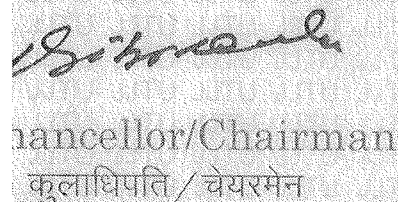 hancellor/Chairman
कुलाधिपति / चेयरमेन